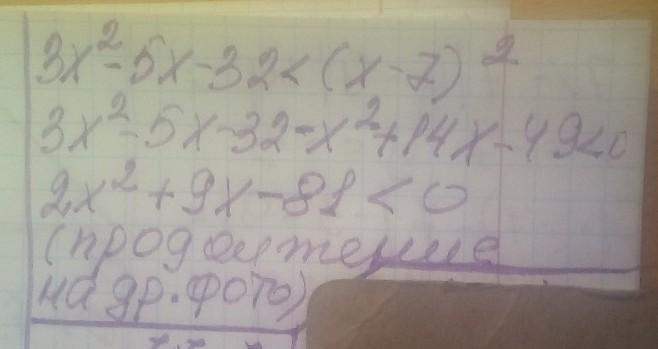 3x²-5x-32<(x-7)²
3x²-5x-32-x²+14x-49<0
2x²+9x-81<0
(продолжение
на др.фото)